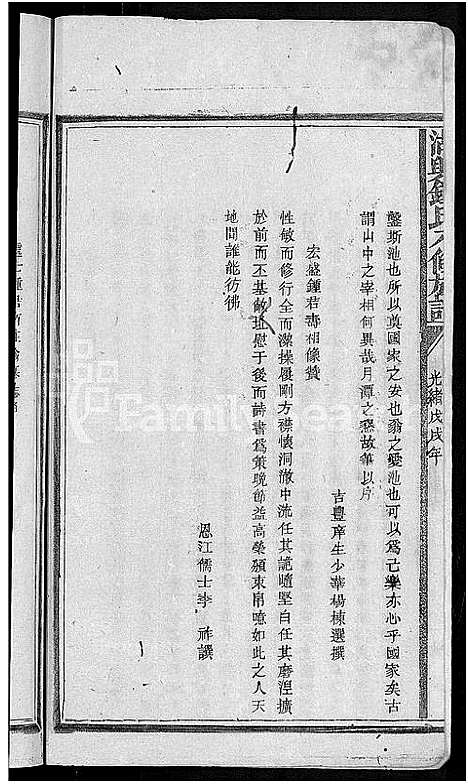 鍾氏八修族譜
光緒戊戌年
鑿斯池也所以奠國家之安也翁之愛池也可以爲己樂亦心乎國家矣古
謂山中之宰相何異哉月潭之懇故筆以序
吉豐庠生少華楊棟選撰
宏盛鍾君壽相像贊
性敏而修行全而潔操履剛方襟懷洞澈中流任其詭隨堅白任其磨湼擴
於前而丕基敞址慰于後而詩書爲策晚節益高榮頒束帛噫如此之人天
地間誰能彷彿
恩江儒士李 祚譔
FamilySearch